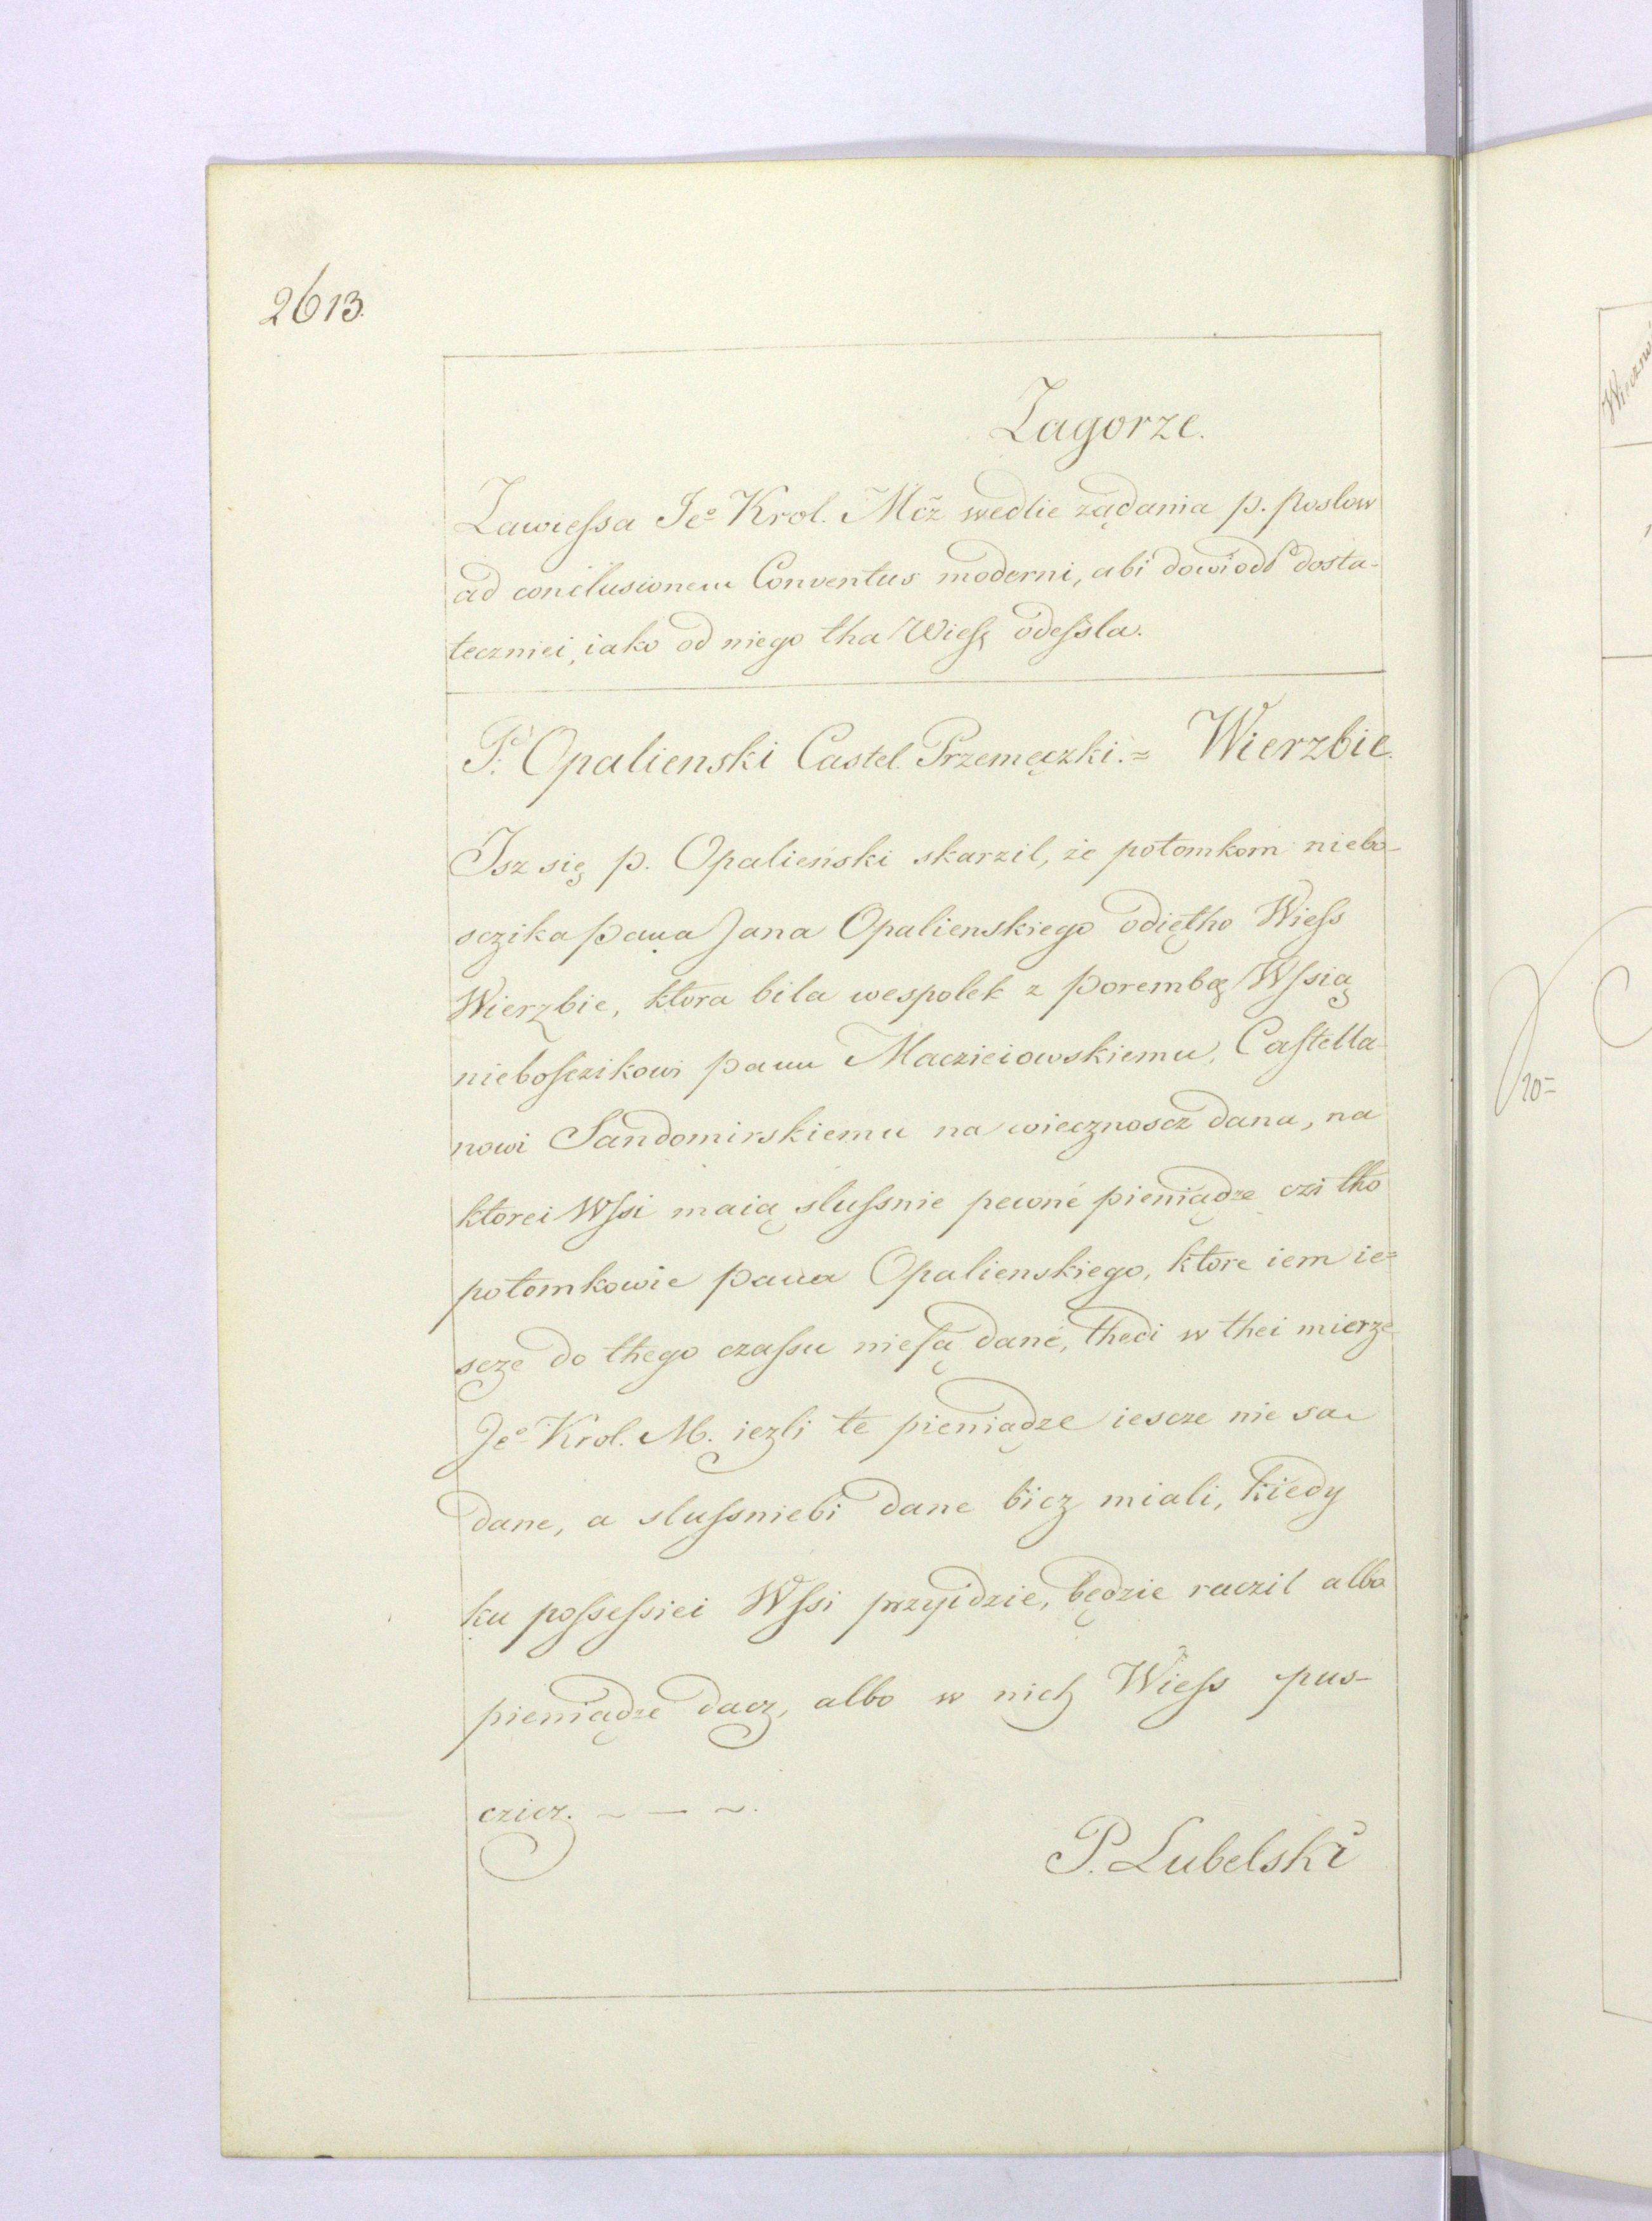 2613.
Zagorze.
Zawieſsa Jeº Krol. Mcż wedlie ząďania p. posłow
ad conclusionem Conventus moderni, abi dowiodł dosta-
teczniei, iako od niego tha Wieſz odeſsla.
P. Opalienski Castel. Przemęczki. = Wierzbie.
Isz się p. Opalieński skarzil, że potomkom niebo-
sczika pana Jana Opalienskiego odiętho Wieſs
Wierzbie, ktora bila wespolek z porembą Wſsią
nieboſczikowi panu Maczieiowskiemu, Caſtella-
nowi Sandomirskiemu na wiecznoscz dana, na
ktorei Wſsi maią sluſsnie pewné pieniądze czi tho
potomkowie pana Opalienskiego, ktore iem ie=
scze do thego czaſsu nieſą dané, thedi w thei mierze
Jeº Krol. M. iezli te pieniądze iescze nie są
dane, a sluſsniebi dane bicz miali, kiedy
ku poſseſsiei Wſsi przyidzie, będzie raczil albo
pieniądze dacz, albo w nich Wieſs pus-
czicz. ~ — ~.
P. Lubelski
20=